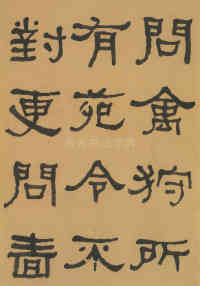 問禽狩所
有苑令不
對更問嗇